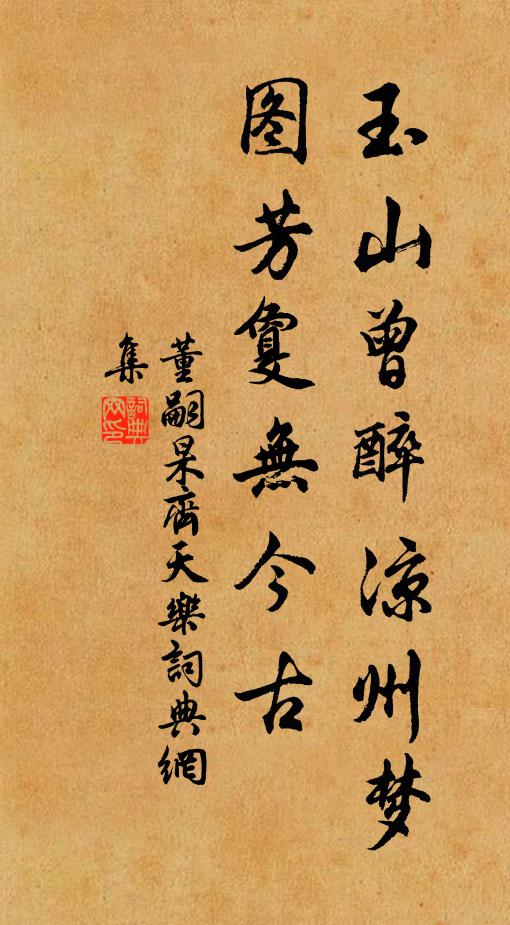 玉山曾醉涼州梦
图芳夐無今古
董嗣杲齊天樂詞典網
集
詞典
网印